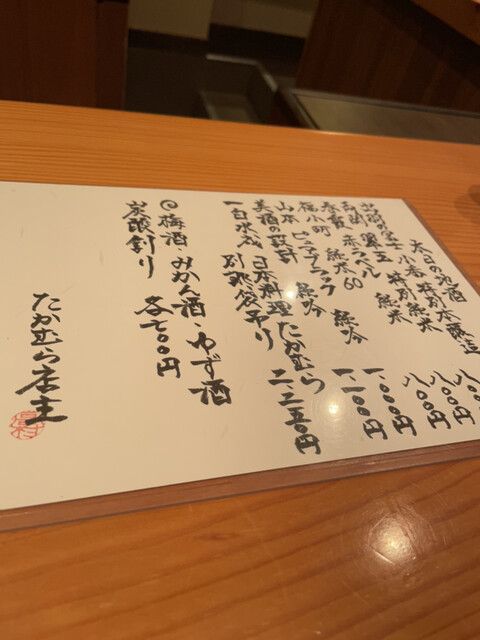 本日の地酒
出羽の冨士 特別本醸造 八〇〇円
小春 特別純米 八〇〇円
翠玉 純米 八〇〇円
両関 赤ラベル
春霞 純米60
福小町 純吟 一.〇〇〇円
山本 ピュアブラック 純吟 一.一〇〇円
美酒の設計
一白水成 日本料理たかむら
別誂袋吊り 二.二五〇円
◎梅酒・みかん酒・ゆず酒
炭酸割り 各七〇〇円
たかむら店主